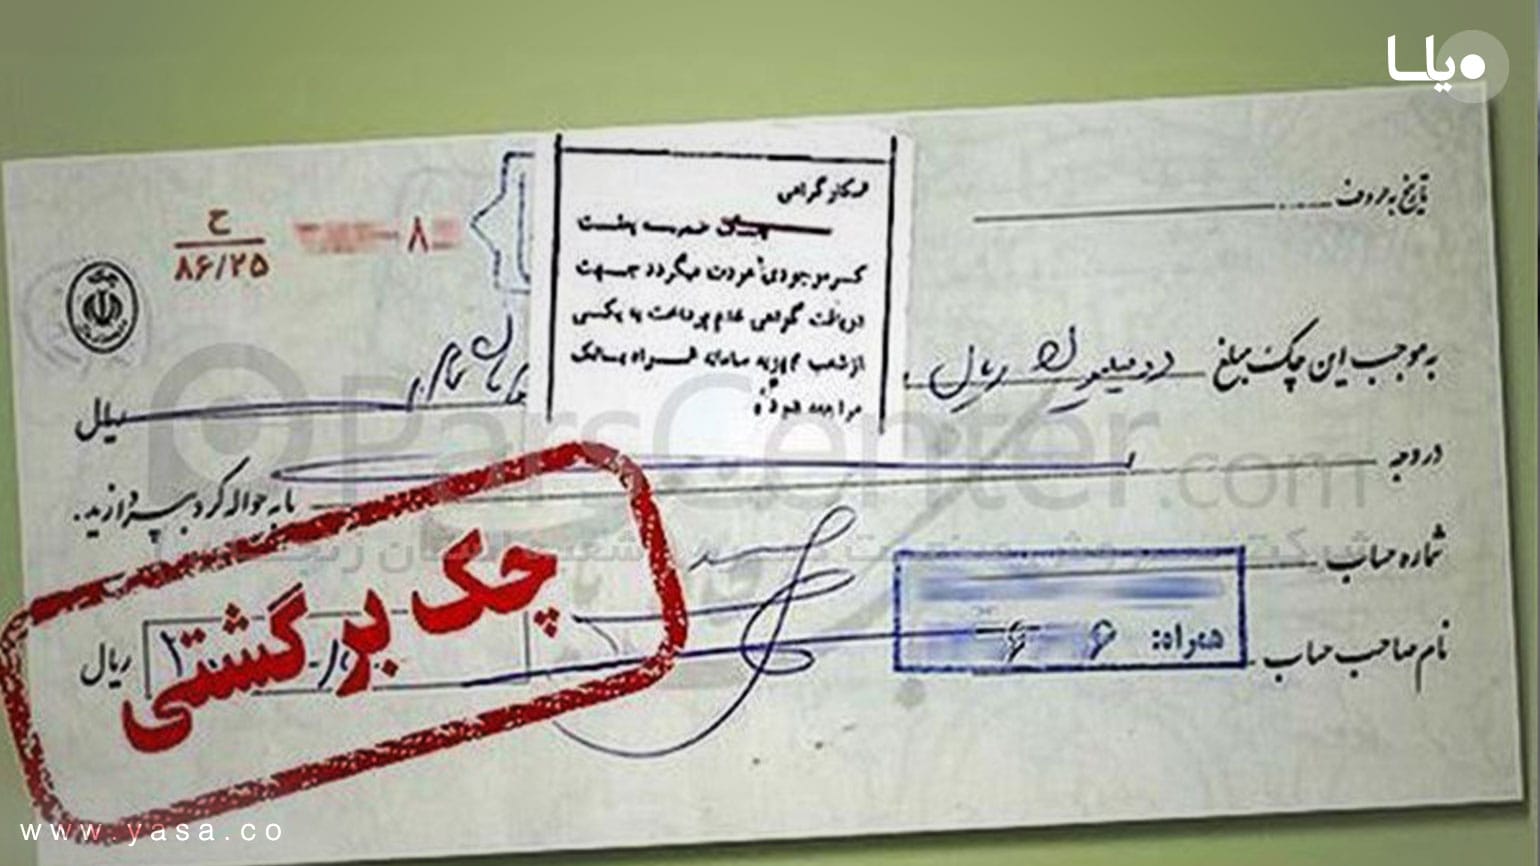 یاسا
تاریخ به حروف
ح
۸۶/۲۵
۸
همکار گرامی
چک ضمیمه بعلت
کسر موجودی عودت میگردد جهت
دریافت گواهی عدم پرداخت به یکی
از شعب مجهز به سامانه همراه مالک
مراجعه شود
به موجب این چک مبلغ دو میلیون ریال
ریال
در وجه
یا به حواله کرد بپردازید.
ParsCenter.com
شماره حساب
همراه:
نام صاحب حساب
ریال
چک برگشتی
www.yasa.co